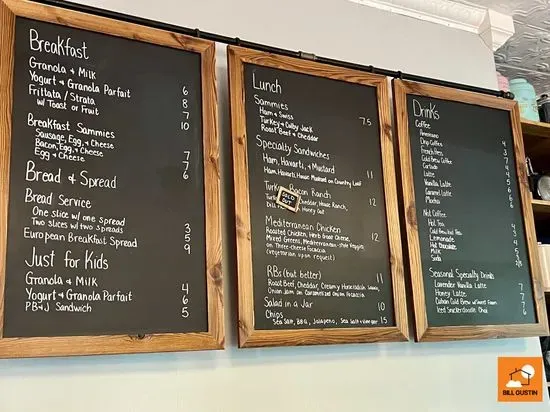 Breakfast
Granola & Milk 6
Yogurt & Granola Parfait 8
Frittata / Strata 7
w/ Toast or Fruit 10
Breakfast Sammies
Sausage, Egg, & Cheese 7
Bacon, Egg, & Cheese 7
Egg & Cheese 6
Bread & Spread
Bread Service
One slice w/ one spread 3
Two slices w/ two spreads 5
European Breakfast Spread 9
Just for Kids
Granola & Milk 4
Yogurt & Granola Parfait 6
PB&J Sandwich 5
Lunch
Sammies
Ham & Swiss
Turkey & Colby Jack 7.5
Roast Beef & Cheddar
Specialty Sandwiches
Ham, Havarti, & Mustard 11
Ham, Havarti, House Mustard on Country Loaf
Turkey Bacon Ranch 12
Cheddar, House Ranch,
SOLD OUT
Mediterranean Chicken
Roasted Chicken, Herb Goat Cheese, 12
Mixed Greens, Mediterranean-style Veggies
on Three-cheese Focaccia
(vegetarian upon request)
RBs (but better) 11
Roast Beef, Cheddar, Creamy Horseradish Sauce,
Onion Jam on Caramelized Onion Focaccia
Salad in a Jar 10
Chips
Sea Salt, BBQ, Jalapeno, Sea Salt & Vinegar 1.5
Drinks
Coffee
Americano
Drip Coffee
French Press
Cold Brew Coffee
Cortado
Latte
Vanilla Latte
Caramel Latte
Mocha
Not Coffee
Hot Tea
Cold Brew Tea
Lemonade
Hot Chocolate
Milk
Soda
Seasonal Specialty Drinks
Lavender Vanilla Latte 7
Honey Latte 7
Cuban Cold Brew w/ Sweet Foam 7
Iced Snickerdoodle Chai 6
BILL GUSTIN